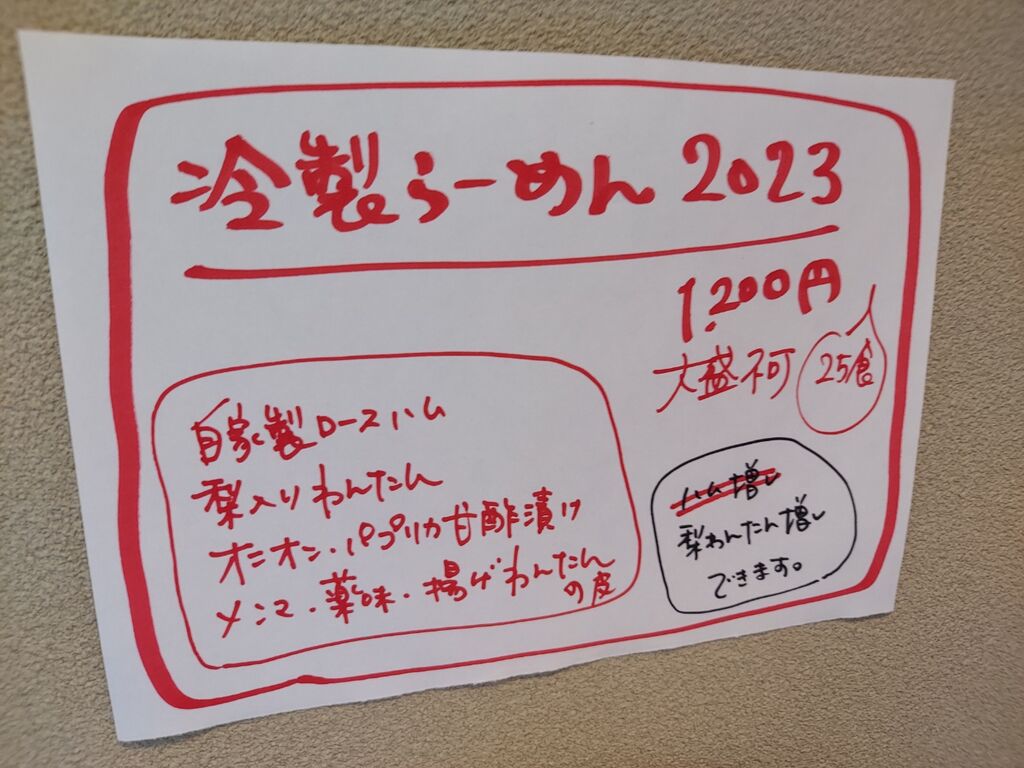 冷製らーめん 2023
1,200円
大盛不可
25食
自家製ロースハム
梨入りわんたん
オニオン・パプリカ甘酢漬け
メンマ・薬味・揚げわんたん
の皮
ハム増し
梨わんたん増し
できます。